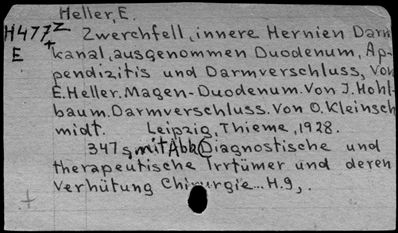 Heller, E.
H477z Zwerchfell, innere Hernien Darm
+
E kanal, ausgenommen Duodenum, Ap-
pendizitis und Darmverschluss, Von
E.Heller. Magen-Duodenum. Von J. Hohl-
baum. Darmverschluss. Von O. Kleinsch
midt. Leipzig, Thieme, 1928.
347 s. mit Abb. (Diagnostische und
therapeutische Irrtümer und deren
Verhütung Chirurgie... H.9,.
+